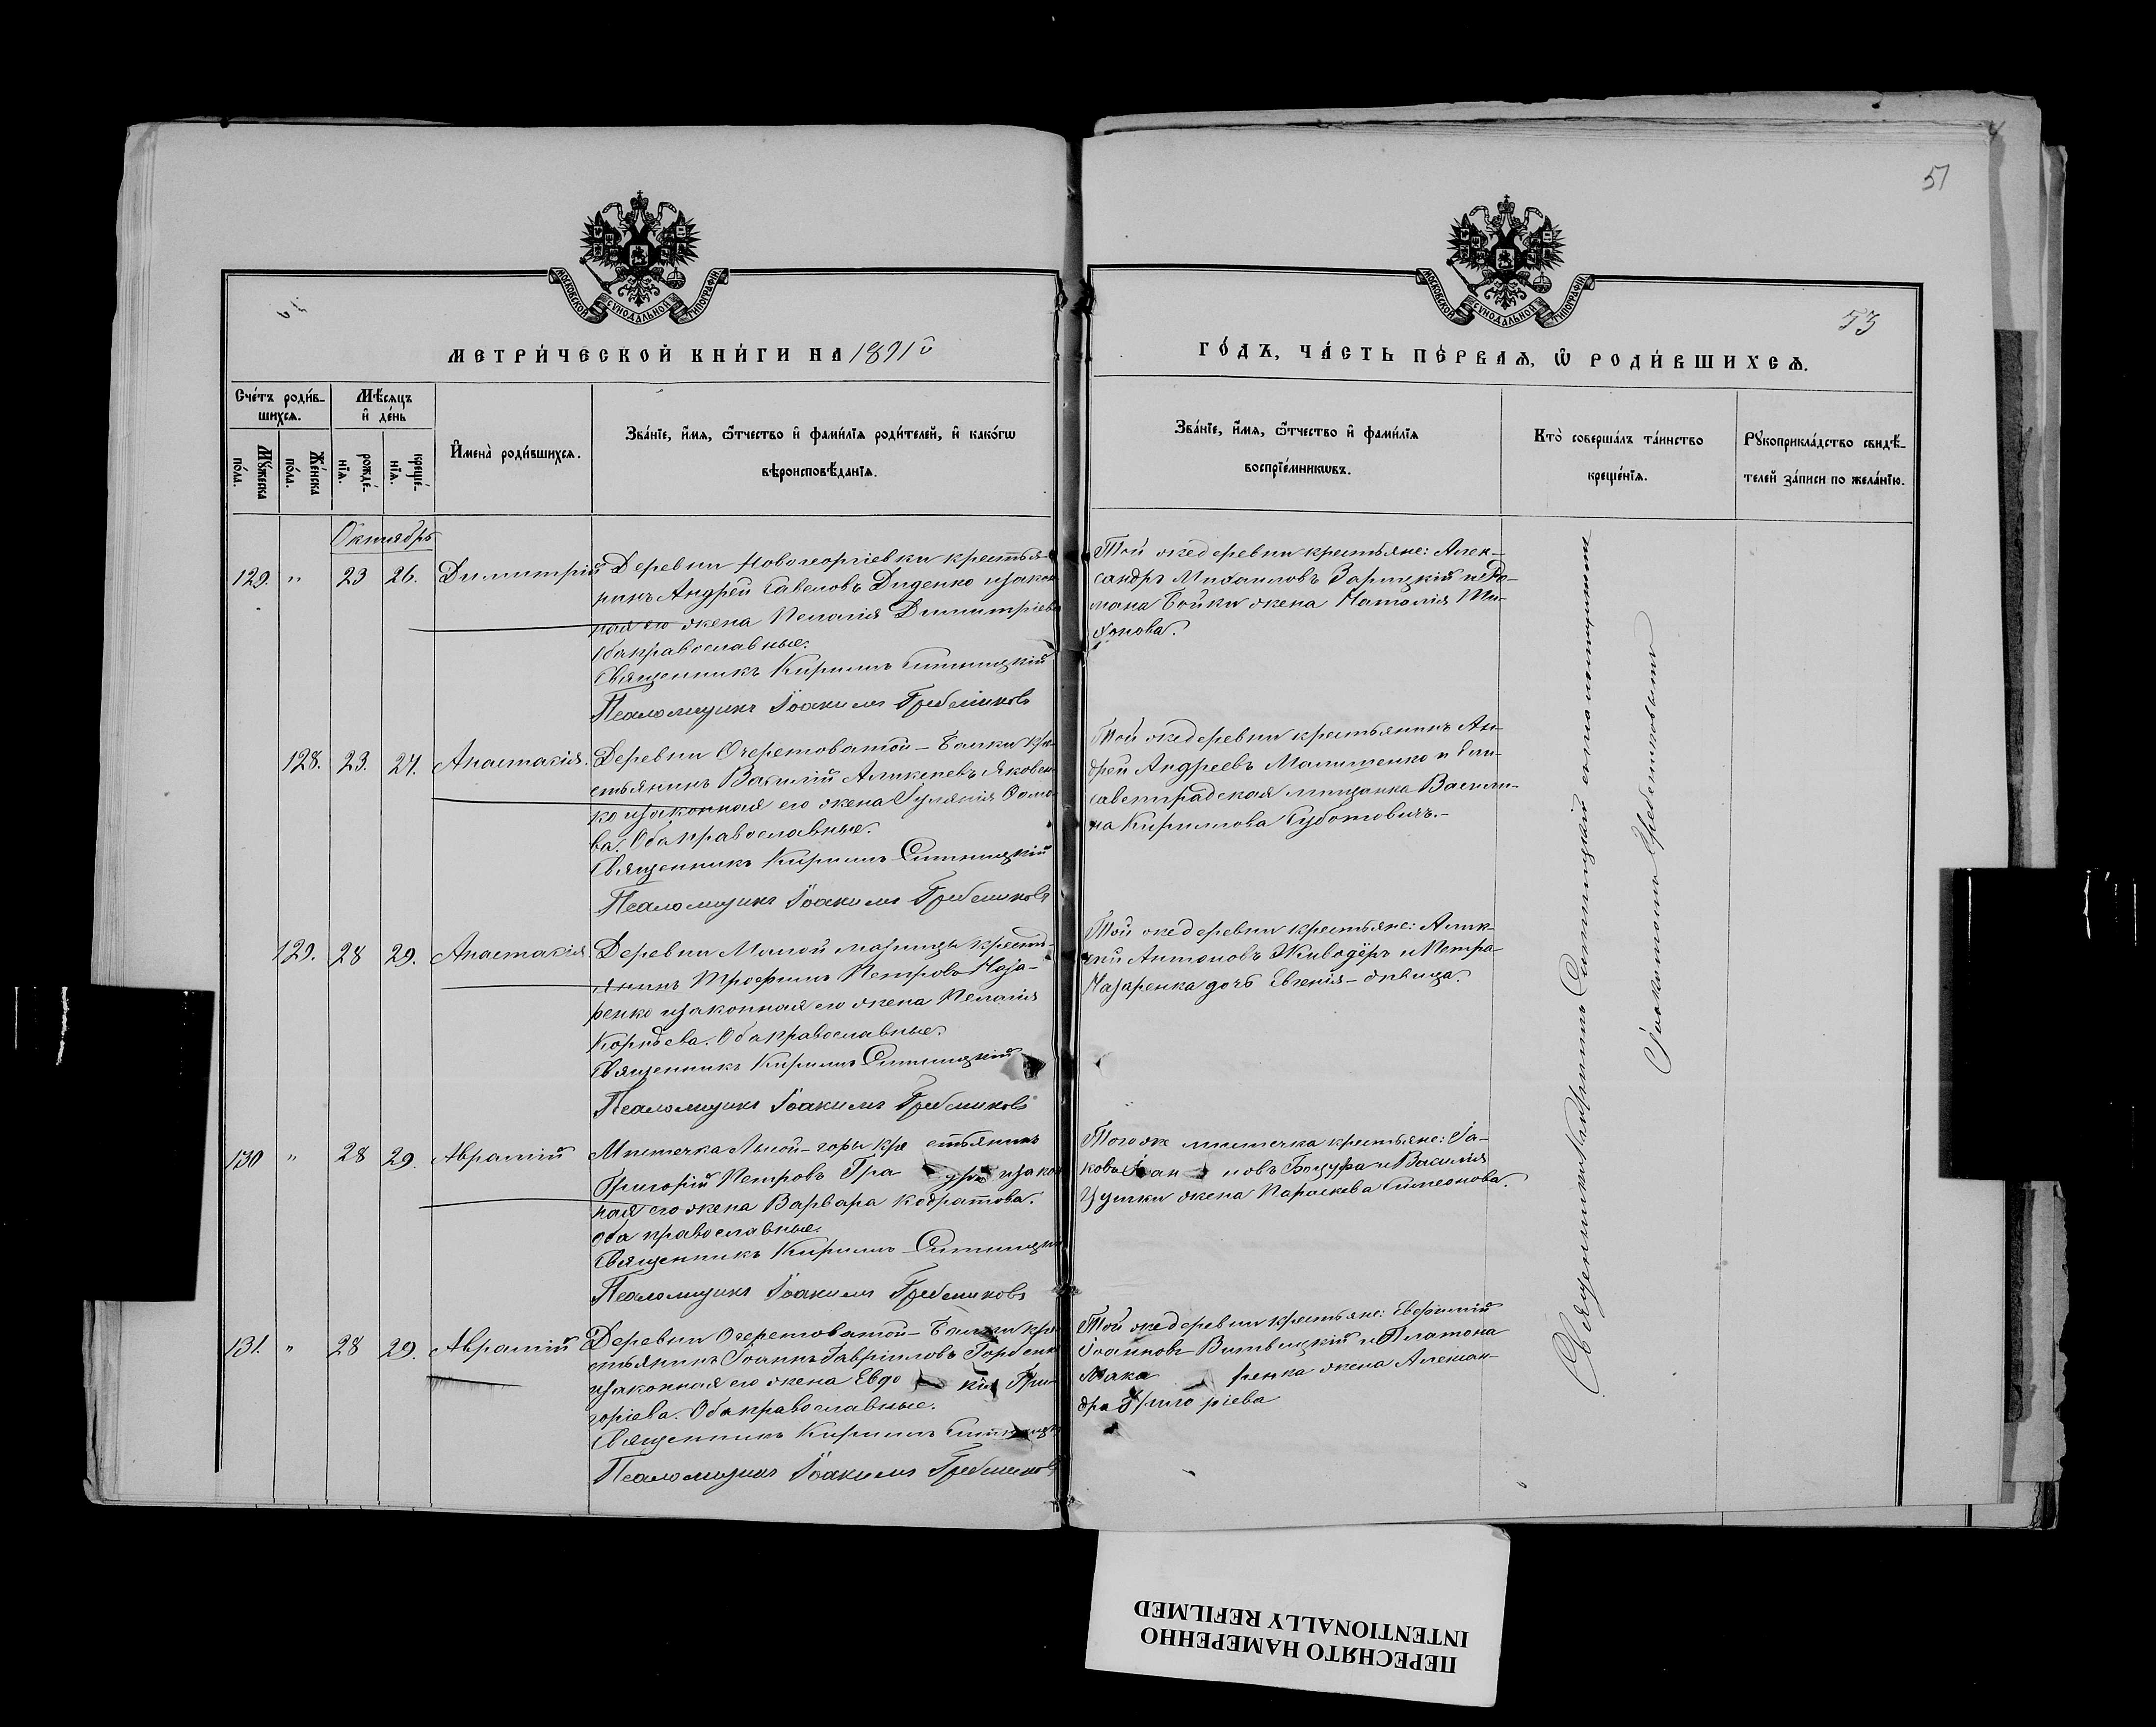 51
МОСКОВСКОЙ СУНОДАЛЬНОЙ ТИПОГРАФІИ
МОСКОВСКОЙ СУНОДАЛЬНОЙ ТИПОГРАФІИ
53
МЕТРИ́ЧЕСКОЙ КНИ́ГИ НА 1891й
ГО́ДЪ, ЧА́СТЬ ПЕ́РВАѦ, Ѿ РОДИ́ВШИХСѦ.
Сче́тъ роди́в-
шихсѧ.
Мѣ́сѧцъ
и҆ де́нь
Мꙋ́жеска
по́ла.
Же́нска
по́ла.
рожде́-
нїѧ.
креще́-
нїѧ.
И҆мена̀ роди́вшихсѧ.
Зва́нїе, и҆́мѧ, ѻ҆́тчество и҆ фами́лїѧ роди́телей, и҆ како́гѡ
вѣроисповѣ́данїѧ.
Зва́нїе, и҆́мѧ, ѻ҆́тчество и҆ фами́лїѧ
воспрїе́мникѡвъ.
Кто̀ соверша́лъ та́инство
креще́нїѧ.
Рꙋкоприкла́дство свидѣ́-
телей за́писи по жела́нїю.
Октябрь
129. " 23 26. Димитрій
Деревни Новогеоргіевки крестья-
нинъ Андрей Савеловъ Диденко и закон
ная его жена Пелагія Димитріева
оба православные.
Священникъ Кириллъ Ситницкій
Псаломщикъ Іоакимъ Гребенниковъ
Той же деревни крестьяне: Алек-
сандръ Михаиловъ Зарицкій и Ро-
мана Бойки жена Наталія Ти-
хонова.
128. 23. 27. Анастасія.
Деревни Очеретоватой-Балки кре-
стьянинъ Василій Алексеевъ Яковен
ко и законная его жена Іуліанія
ва. Оба православные.
Священникъ Кириллъ Ситницкій
Псаломщикъ Іоакимъ Гребенниковъ
Той же деревни крестьянинъ Ан-
дрей Андреевъ Малишенко и Ели-
саветградская мещанка Васили-
на Кириллова Суботовичъ.-
129. 28 29. Анастасія
Деревни Малой Мазницы кресть-
янинъ Трофимъ Петровъ Наза-
ренко и законная его жена Пелагія
Корнѣева. Оба православные.
Священникъ Кириллъ Ситницкій
Псаломщикъ Іоакимъ Гребенниковъ
Той же деревни крестьяне: Алек-
сѣй Антоновъ Живодёръ и Петра-
Назаренка дочь Евгенія-дѣвица.
130 " 28 29. Аврамій
Мѣстечка Лысой-горы кре стьянинъ
Григорій Петровъ и закон
ная его жена Варвара Кодратова.
Оба православные.
Священникъ Кириллъ Ситницкій
Псаломщикъ Іоакимъ Гребенниковъ
Того же мѣстечка крестьяне: Іа-
ковъ Іоан новъ Боцура и Василія
Цулики жена Параскева Симеонова.
131. " 28 29. Аврамій
Деревни Очеретоватой-Балки кре
стьянинъ Іоаннъ Гавріиловъ Горбенко
и законная его жена Евдо кія Гри
горіева. Оба православные.
Священникъ Кириллъ Ситницкій
Псаломщикъ Іоакимъ Гребенниковъ
Той же деревни крестьяне: Евфимій
Іоанновъ Витвицкій и Платона
Мака ренка жена Алексан-
дра Григо ріева
Священникъ Кириллъ Ситницкій съ псаломщикомъ
Іоакимомъ Гребенниковымъ
ПЕРЕСНЯТО НАМЕРЕННО
INTENTIONALLY REFILMED